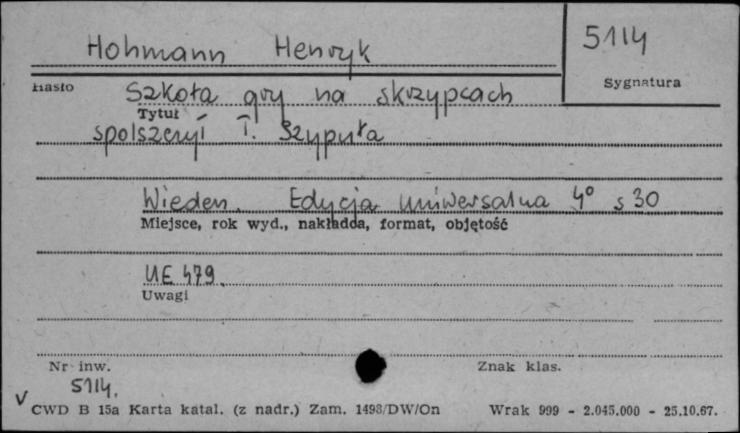 Hohmann Henryk
5114
Hasło
Sygnatura
Szkoła gry na skrzypcach
Tytuł
spolszczył T. Szypuła
Wieden. Edycja uniwersalna 4° s 30
Miejsce, rok wyd., nakładca, format, objętość
UE 479.
Uwagi
Nr inw.
Znak klas.
5114.
V
CWD B 15a Karta katal. (z nadr.) Zam. 1493/DW/On
Wrak 999 - 2.045.000 - 25.10.67.